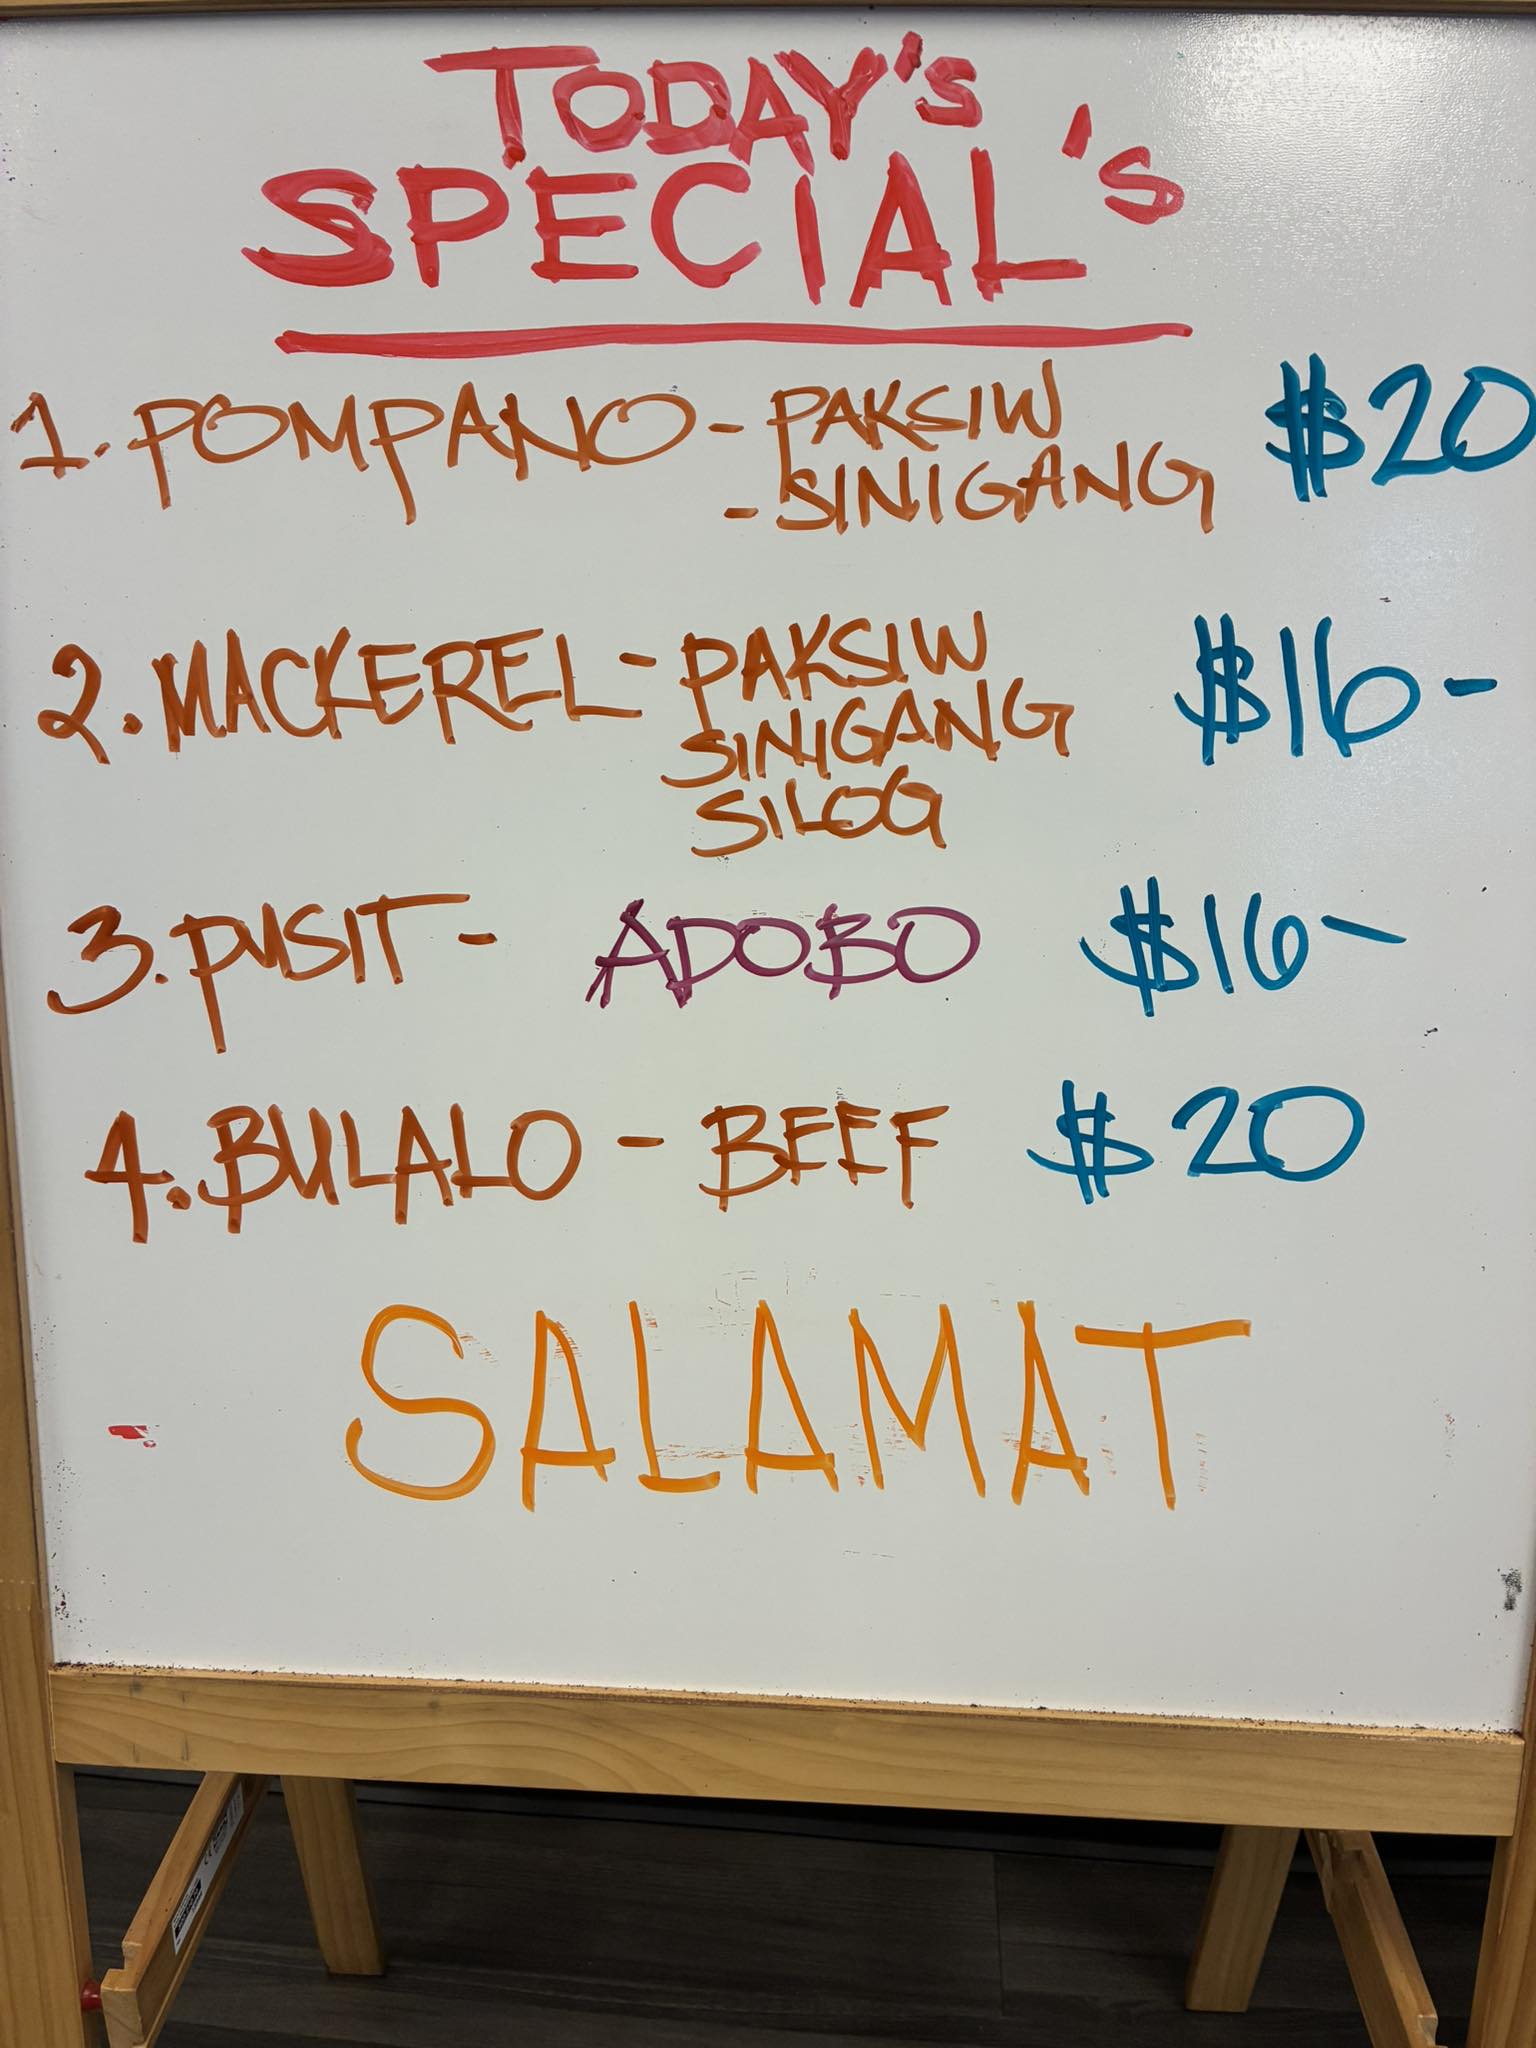 TODAY'S
SPECIAL'S
1. POMPANO - PAKSIW $20
- SINIGANG
2. MACKEREL - PAKSIW $16-
SINIGANG
SILOG
3. PUSIT - ADOBO $16-
4. BULALO - BEEF $20
SALAMAT